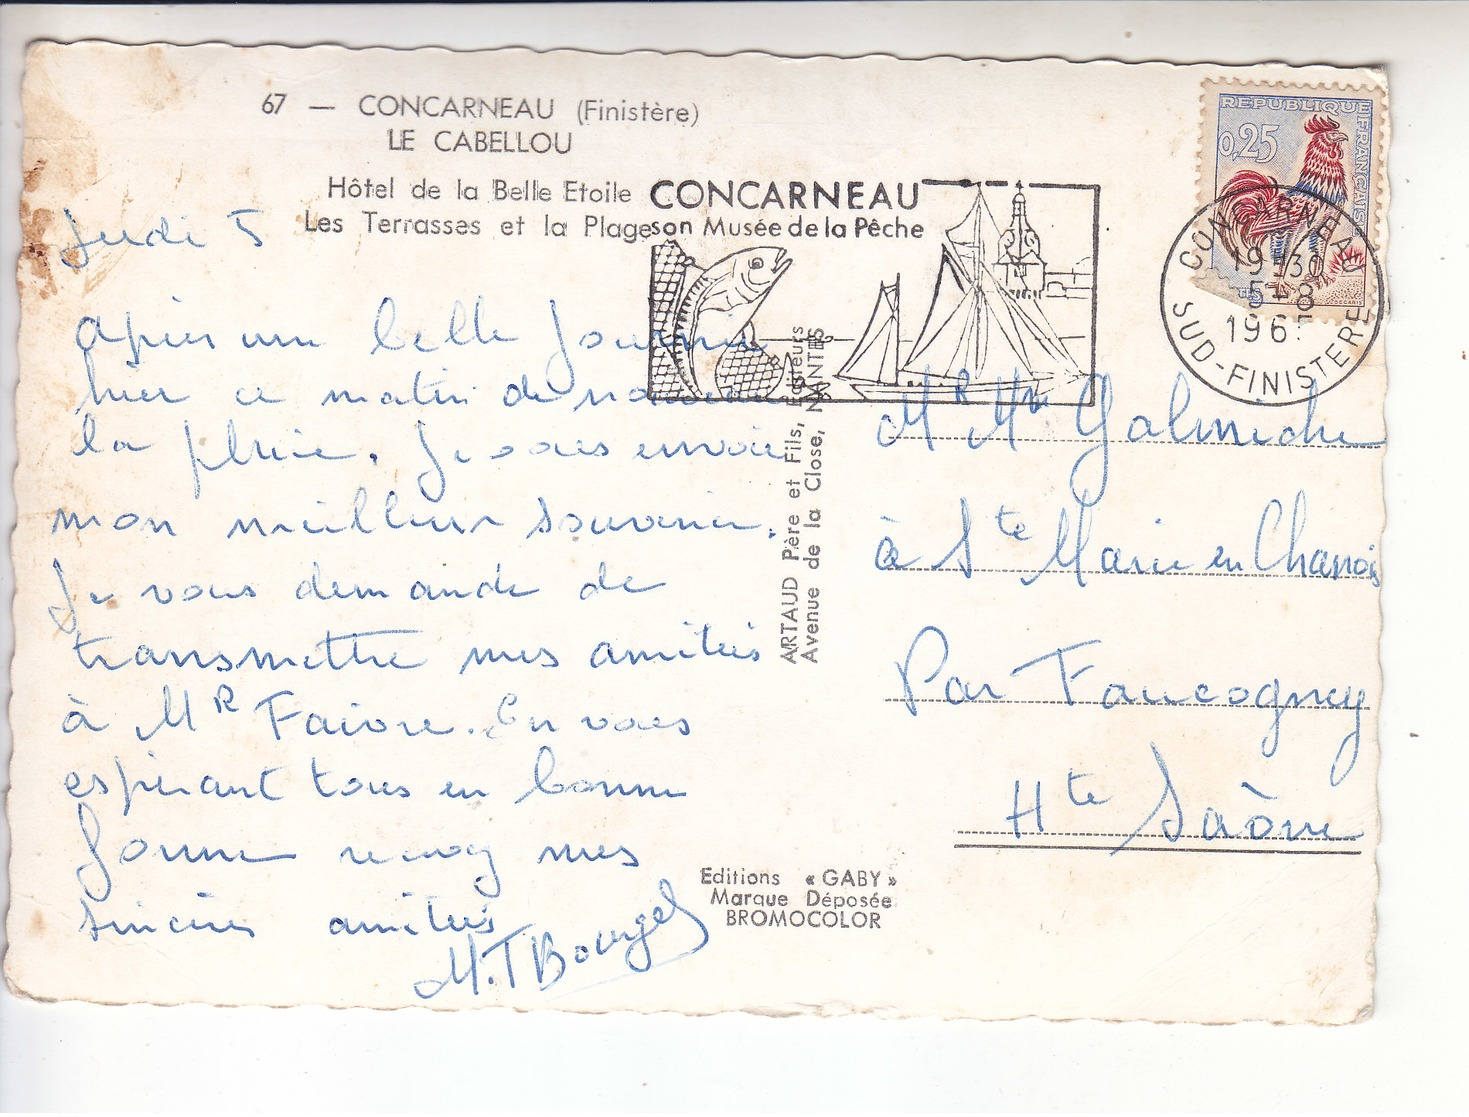 67 — CONCARNEAU (Finistère)
LE CABELLOU
Hôtel de la Belle Etoile
Les Terrasses et la Plage
CONCARNEAU
son Musée de la Pêche
REPUBLIQUE FRANÇAISE
0,25
CONCARNEAU
19H30
5-8
196
SUD-FINISTERE
Jeudi 5
Après une belle journée
hier ce matin de nouveau
la pluie. Je vous envoie
mon meilleur souvenir.
Je vous demande de
transmettre mes amitiés
à MR Faivre. En vous
espérant tous en bonne
forme recevez mes
sincères amitiés
M.T Bourgel
ARTAUD Père et Fils, Editeurs
Avenue de la Close, NANTES
MR Me Galmiche
à Ste Marie en Chanois
Par Faucogney
Hte Saône
Editions « GABY »
Marque Déposée
BROMOCOLOR